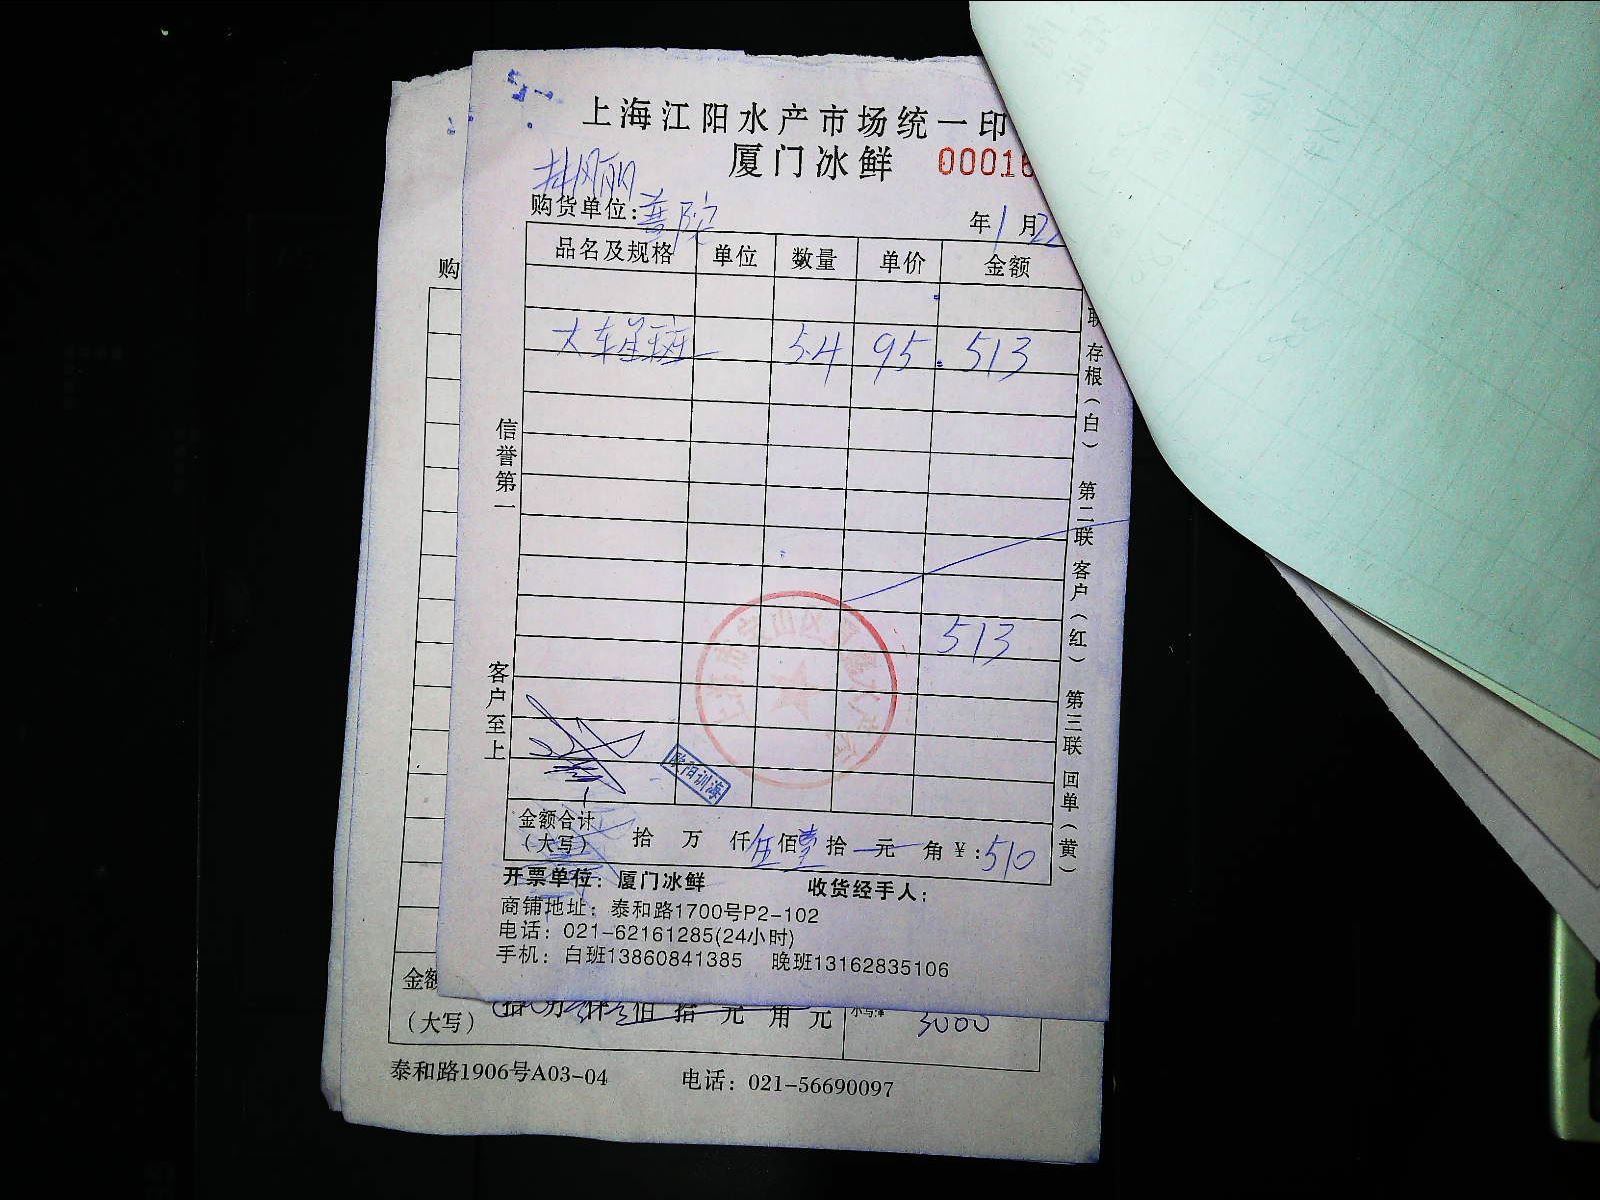 上海江阳水产市场统一印
厦门冰鲜 00016
购货单位:
年1月22
品名及规格 单位 数量 单价 金额
大车星斑 5.4 95. 513
513
信誉第一
客户至上
联 存根(白) 第二联 客户(红) 第三联 回单(黄)
欧阳训海
金额合计(大写) 拾 万 仟伍佰壹拾 元 角 ¥:510
开票单位: 厦门冰鲜 收货经手人:
商铺地址: 泰和路1700号P2-102
电话: 021-62161285(24小时)
手机: 白班13860841385 晚班13162835106
购
金额
(大写) 拾 万 仟 佰 拾 元 角 元 小写:¥ 3000
泰和路1906号A03-04 电话: 021-56690097